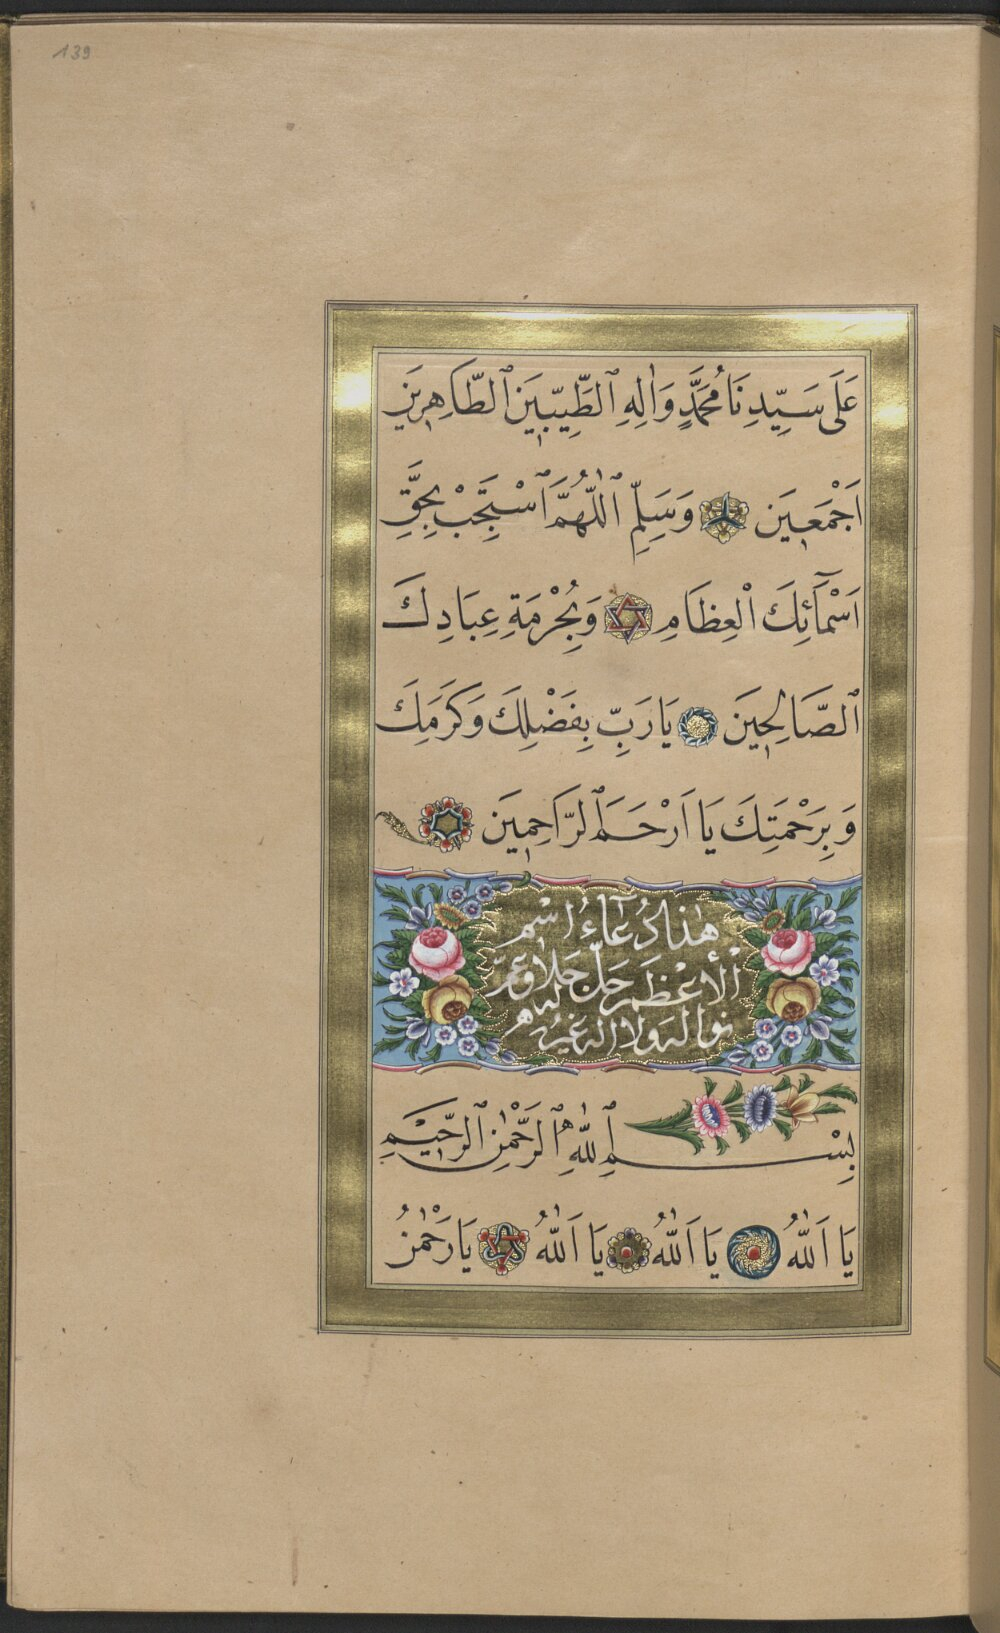 139
عَلَى سَيِّدِنَا مُحَمَّدٍ وَاٰلِهِ ٱلطَّيِّبِينَ ٱلطَّاهِرِينَ
اَجْمَعِينَ وَسَلِّمِ ٱللّٰهُمَّ ٱسْتَجِبْ بِحَقِّ
اَسْمَآئِكَ الْعِظَامِ وَبِحُرْمَةِ عِبَادِكَ
ٱلصَّالِحِينَ يَا رَبِّ بِفَضْلِكَ وَكَرَمِكَ
وَبِرَحْمَتِكَ يَا اَرْحَمَ ٱلرَّاحِمِينَ
هٰذَا دُعَآءُ اسْمِ
الْأَعْظَمِ جَلَّ جَلَالُهُ وَعَمَّ
نَوَالُهُ وَلَا اِلٰهَ غَيْرُهُ
بِسْمِ ٱللّٰهِ ٱلرَّحْمٰنِ ٱلرَّحِيمِ
يَا اَللّٰهُ يَا اَللّٰهُ يَا اَللّٰهُ يَا رَحْمٰنُ